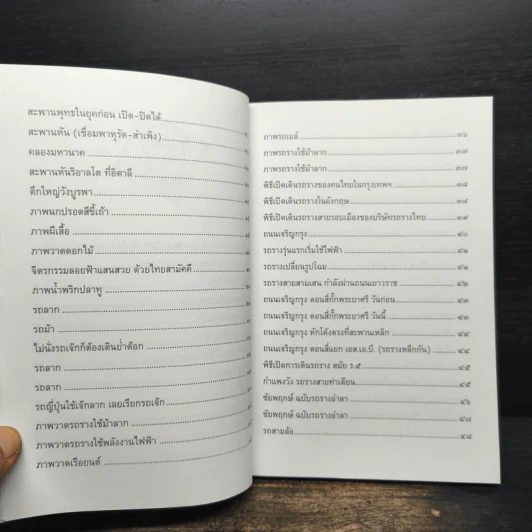 สะพานพุทธในยุคก่อน เปิด-ปิดได้
สะพานหัน (เชื่อมพาหุรัด-สำเพ็ง)
คลองมหานาค
สะพานหันริอาลโต ที่อิตาลี
ตึกใหญ่วังบูรพา
ภาพนกปรอดสีขี้เถ้า
ภาพผีเสื้อ
ภาพวาดดอกไม้
จิตรกรรมลอยฟ้าแสนสวย ด้วยไทยสามัคคี
ภาพน้ำพริกปลาทู
รถลาก
รถม้า
ไม่นั่งรถเจ๊กก็ต้องเดินย่ำต๊อก
รถลาก
รถลาก
รถญี่ปุ่นใช้เจ๊กลาก เลยเรียกรถเจ๊ก
ภาพวาดรถรางใช้ม้าลาก
ภาพวาดรถรางใช้พลังงานไฟฟ้า
ภาพวาดเรือยนต์
ภาพรถเมล์ ๓๖
ภาพรถรางใช้ม้าลาก ๓๗
ภาพรถรางใช้ม้าลาก ๓๗
พิธีเปิดเดินรถรางของคนไทยในกรุงเทพฯ ๓๘
พิธีเปิดเดินรถรางในอังกฤษ ๓๘
พิธีเปิดเดินรถรางสายรอบเมืองของบริษัทรถรางไทย ๓๙
ถนนเจริญกรุง ๔๐
รถรางรุ่นแรกเริ่มใช้ไฟฟ้า ๔๑
รถรางเปลี่ยนรูปโฉม ๔๑
รถรางสายสามเสน กำลังผ่านถนนเยาวราช ๔๒
ถนนเจริญกรุง ตอนสี่กั๊กพระยาศรี วันก่อน ๔๓
ถนนเจริญกรุง ตอนสี่กั๊กพระยาศรี วันนี้ ๔๓
ถนนเจริญกรุง หักโค้งตรงที่สะพานเหล็ก ๔๔
ถนนเจริญกรุง ตอนสี่แยก เอส.เอ.บี. (รถรางหลีกกัน) ๔๔
พิธีเปิดการเดินรถราง สมัย ร.๕ ๔๕
กำแพงวัง รถรางสายท่าเตียน ๔๕
ชัยพฤกษ์ ฉบับรถรางอำลา ๔๖
ชัยพฤกษ์ ฉบับรถรางอำลา ๔๗
รถสามล้อ ๔๘